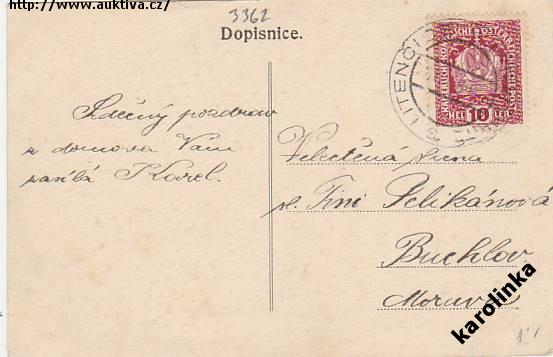 http://www.auktiva.cz/
3362
Dopisnice.
Srdečný pozdrav
z domova Vám
zasílá Karel.
LITENČI
KAISERLICHE KÖNIGLICHE ÖSTERREICHISCHE POST
HELLER
10
Velectěná slečna
sl. Tini Pelikánová
Buchlov
Morava
karolinka